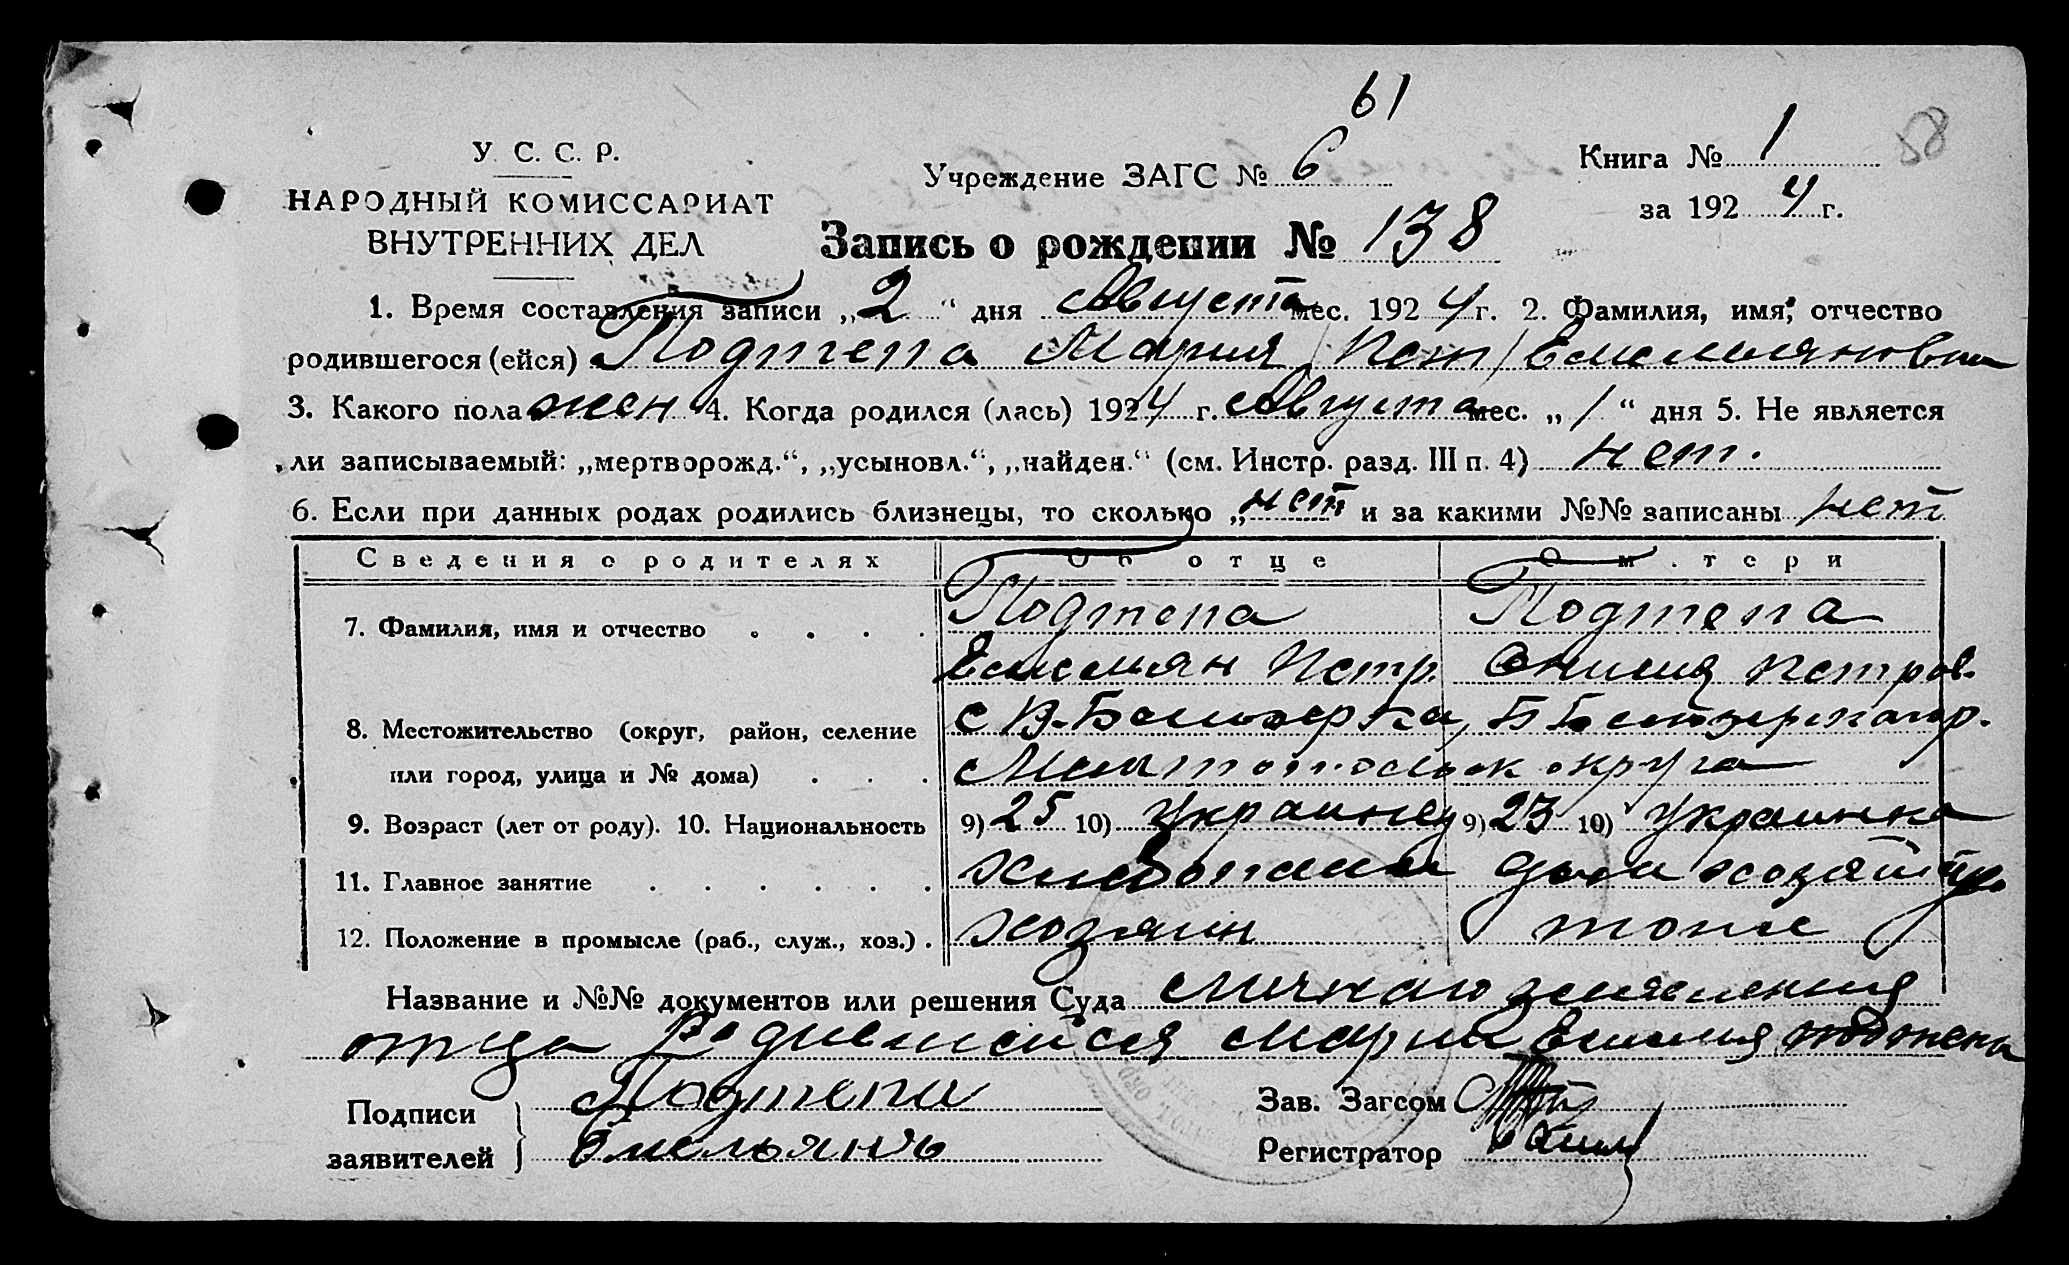 61
У. С. С. Р.
НАРОДНЫЙ КОМИССАРИАТ
ВНУТРЕННИХ ДЕЛ
Учреждение ЗАГС № 6
Книга № 1
58
за 1924 г.
Запись о рождении № 138
1. Время составления записи „2“ дня Августа мес. 1924 г. 2. Фамилия, имя, отчество
родившегося (ейся) Подтепа Мария /нет/ Емельяновна
3. Какого пола жен 4. Когда родился (лась) 1924 г. Августа мес. „1“ дня 5. Не является
ли записываемый: „мертворожд.“, „усыновл.“, „найден.“ (см. Инстр. разд. III п. 4) нет.
6. Если при данных родах родились близнецы, то сколько „нет и за какими №№ записаны нет
Сведения о родителях Об отце О м.тери
7. Фамилия, имя и отчество . . . . Подтепа Подтепа
Емельян Петр. Петров.
8. Местожительство (округ, район, селение с В-Белозерка,
или город, улица и № дома) . . . округа
9. Возраст (лет от роду). 10. Национальность 9) 25 10) Украинец 9) 23 10) Украинка
11. Главное занятие . . . . . . дом хозяйство
12. Положение в промысле (раб., служ., хоз.) . хозяин тоже
Название и №№ документов или решения Суда заявления
отца Родившейся Марии
Подписи заявителей } Подтепа
Емельянъ
Зав. Загсом
Регистратор